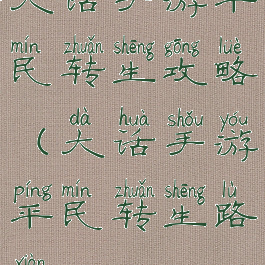 大话手游平
mín zhuǎn shēng gōng lüè
民转生攻略
dà huà shǒu yóu
（大话手游
píng mín zhuǎn shēng lù
平民转生路
xiàn